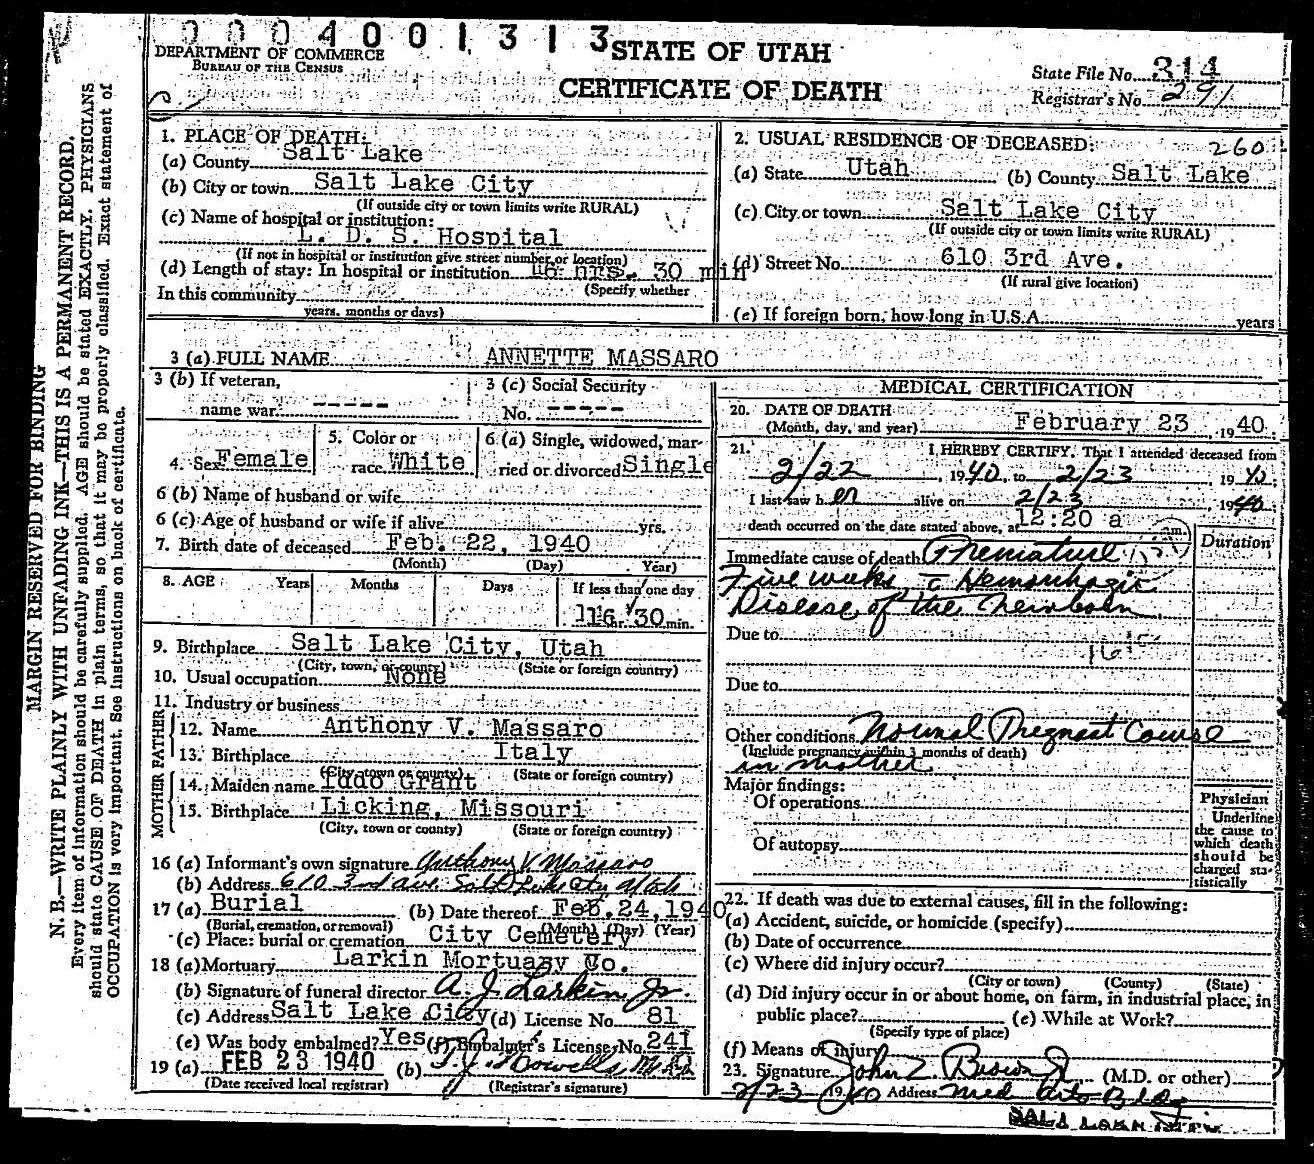 0004001313
STATE OF UTAH
CERTIFICATE OF DEATH
DEPARTMENT OF COMMERCE
BUREAU OF THE CENSUS
State File No. 314
Registrar's No. 291
MARGIN RESERVED FOR BINDING
N. B.—WRITE PLAINLY WITH UNFADING INK—THIS IS A PERMANENT RECORD.
Every item of information should be carefully supplied. AGE should be stated EXACTLY. PHYSICIANS
should state CAUSE OF DEATH in plain terms, so that it may be properly classified. Exact statement of
OCCUPATION is very important. See instructions on back of certificate.
1. PLACE OF DEATH:
(a) County Salt Lake
(b) City or town Salt Lake City
(If outside city or town limits write RURAL)
(c) Name of hospital or institution:
L. D. S. Hospital
(If not in hospital or institution give street number or location)
(d) Length of stay: In hospital or institution 16 hrs. 30 min
(Specify whether
In this community
years, months or days)
2. USUAL RESIDENCE OF DECEASED: 260
(a) State Utah (b) County Salt Lake
(c) City or town Salt Lake City
(If outside city or town limits write RURAL)
(d) Street No. 610 3rd Ave.
(If rural give location)
(e) If foreign born, how long in U.S.A. years
3 (a) FULL NAME ANNETTE MASSARO
3 (b) If veteran,
name war -----
3 (c) Social Security
No. -----
4. Sex Female
5. Color or
race White
6 (a) Single, widowed, mar-
ried or divorced Single
6 (b) Name of husband or wife
6 (c) Age of husband or wife if alive yrs.
7. Birth date of deceased Feb. 22, 1940
(Month) (Day) Year)
8. AGE Years Months Days If less than one day
16 hr. 30 min.
9. Birthplace Salt Lake City, Utah
(City, town, or county) (State or foreign country)
10. Usual occupation None
11. Industry or business
FATHER
12. Name Anthony V. Massaro
13. Birthplace Italy
(City, town or county) (State or foreign country)
MOTHER
14. Maiden name Grant
15. Birthplace Licking, Missouri
(City, town or county) (State or foreign country)
16 (a) Informant's own signature Anthony V Massaro
(b) Address 610 3rd ave. Salt Lake City Utah
17 (a) Burial (b) Date thereof Feb. 24, 1940
(Burial, cremation, or removal) (Month) (Day) (Year)
(c) Place: burial or cremation City Cemetery
18 (a) Mortuary Larkin Mortuary Co.
(b) Signature of funeral director A. J. Larkin, Jr.
(c) Address Salt Lake City (d) License No. 81
(e) Was body embalmed? Yes (f) Embalmer's License No. 241
19 (a) FEB 23 1940 (b) T. J. Howells, M.D.
(Date received local registrar) (Registrar's signature)
MEDICAL CERTIFICATION
20. DATE OF DEATH
(Month, day, and year) February 23, 1940
21. I HEREBY CERTIFY, That I attended deceased from
2/22, 1940, to 2/23, 1940
I last saw h er alive on 2/23, 1940
death occurred on the date stated above, at 12:20 a m.
Duration
Immediate cause of death Premature
Five weeks c̄ Hemorrhagic
Disease of the newborn
Due to
Due to
Other conditions Normal Pregnant Course
(Include pregnancy within 3 months of death)
in mother
Major findings:
Of operations
Of autopsy
Physician
Underline
the cause to
which death
should be
charged sta-
tistically
22. If death was due to external causes, fill in the following:
(a) Accident, suicide, or homicide (specify)
(b) Date of occurrence
(c) Where did injury occur?
(City or town) (County) (State)
(d) Did injury occur in or about home, on farm, in industrial place, in
public place? (e) While at Work?
(Specify type of place)
(f) Means of injury
23. Signature John Z. Brown Jr (M.D. or other)
2/23 1940 Address Med Arts Bldg
SALT LAKE CITY